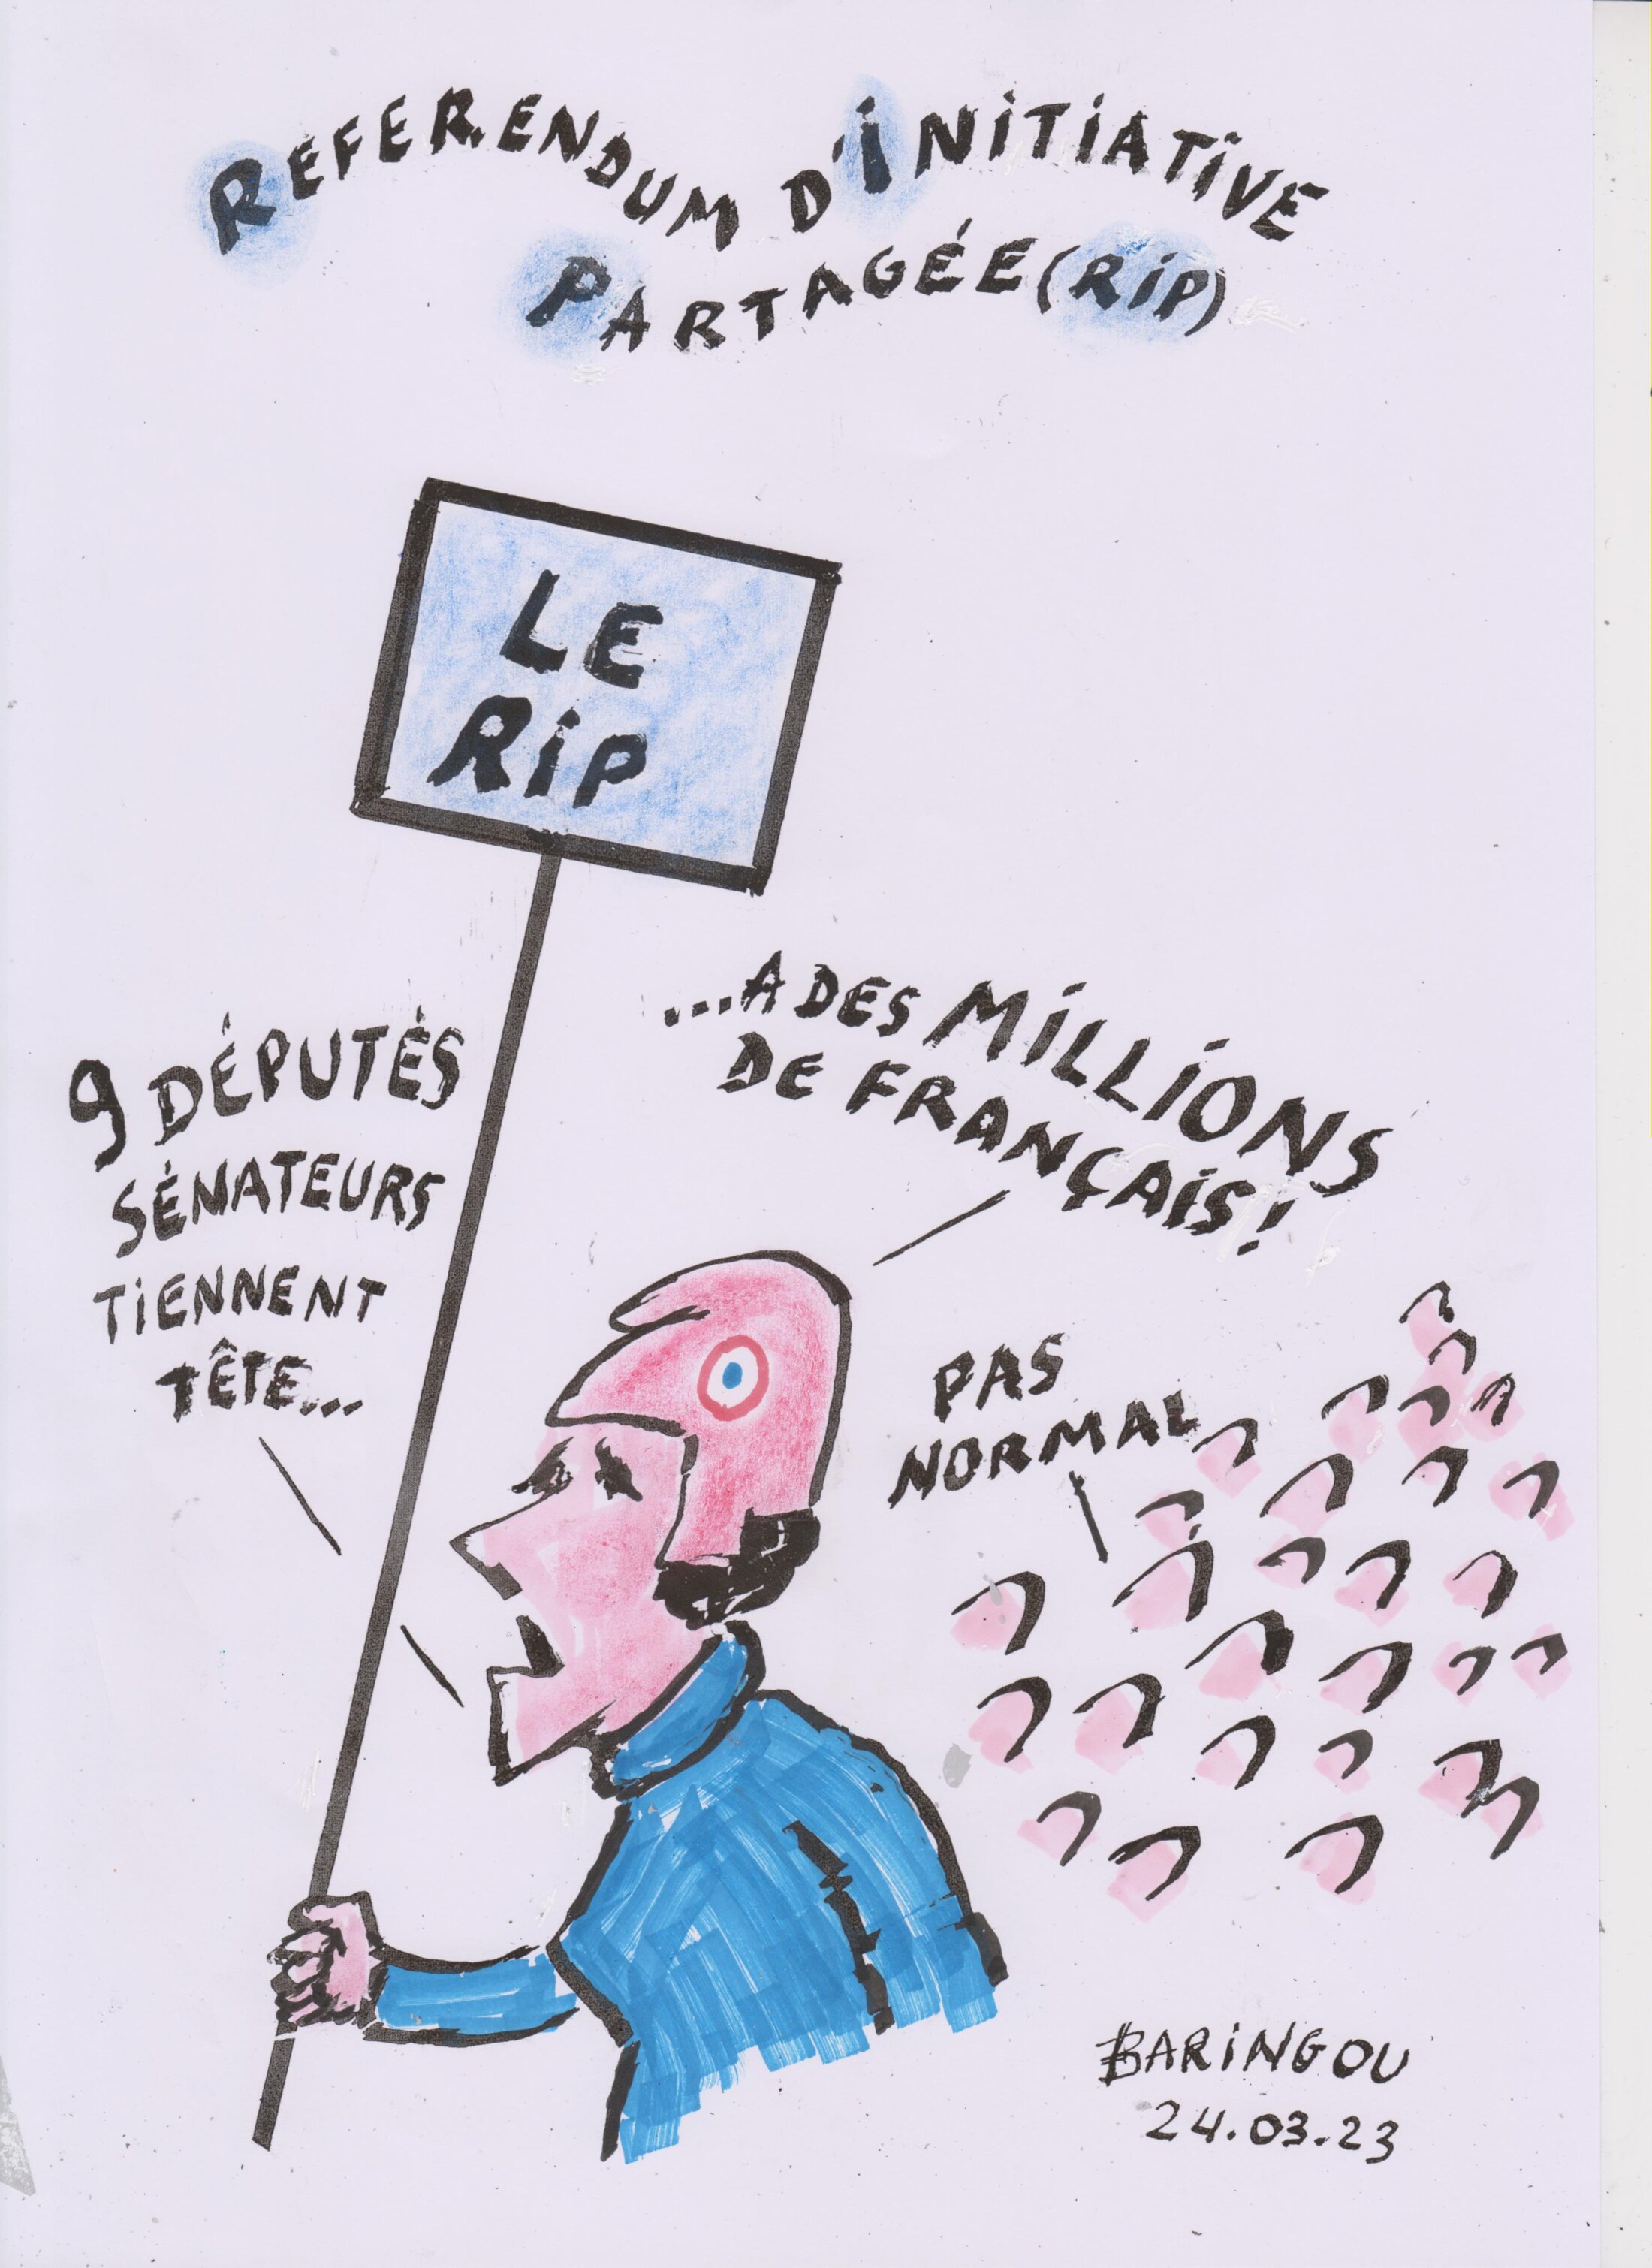 REFERENDUM D'INITIATIVE
PARTAGÉE (RIP)
LE
RIP
9 DÉPUTÉS
SÉNATEURS
TIENNENT
TÊTE...
...A DES MILLIONS
DE FRANÇAIS!
PAS
NORMAL
BARINGOU
24.03.23